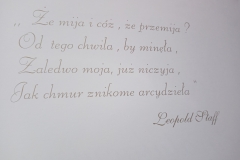 „ Że mija i cóż, że przemija?
Od tego chwila, by minęła,
Zaledwo moja, już niczyja,
Jak chmur znikome arcydzieła"
Leopold Staff